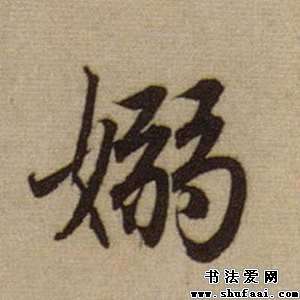 嫋
书法爱网
www.shufaai.com